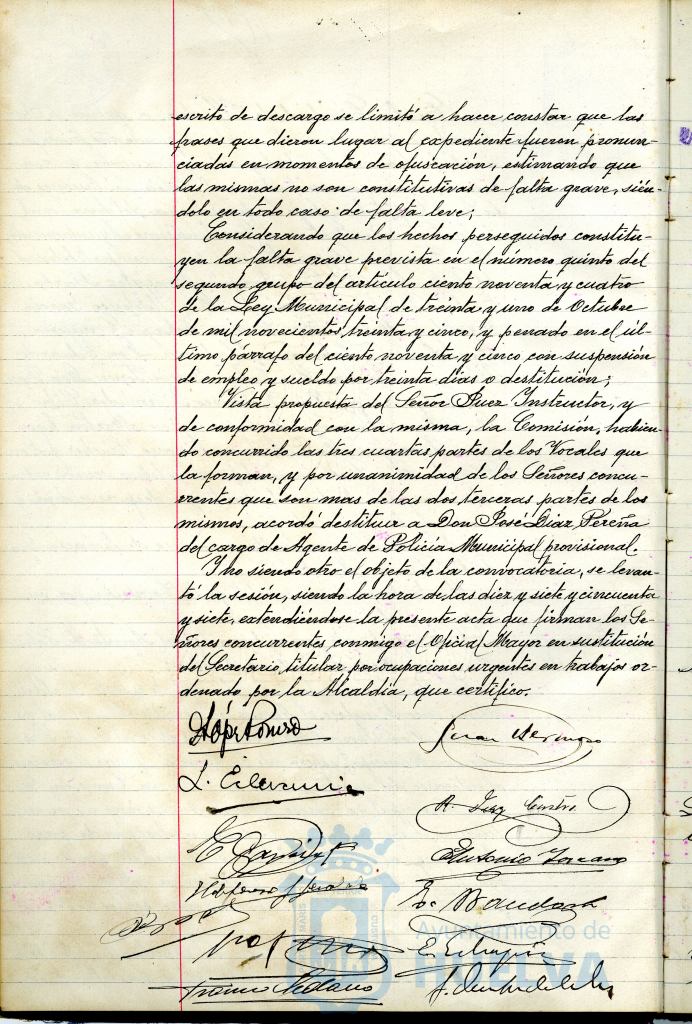 escrito de descargo se limitó a hacer constar que las
frases que dieron lugar al expediente fueron pronun-
ciadas en momentos de ofuscación, estimando que
las mismas no son constitutivas de falta grave, sién-
dolo en todo caso de falta leve;
Considerando que los hechos perseguidos constitu-
yen la falta grave prevista en el número quinto del
segundo grupo del artículo ciento noventa y cuatro
de la Ley Municipal de treinta y uno de Octubre
de mil novecientos treinta y cinco, y penado en el úl-
timo párrafo del ciento noventa y cinco con suspensión
de empleo y sueldo por treinta días o destitución;
Vista propuesta del Señor Juez Instructor, y
de conformidad con la misma, la Comisión, habien-
do concurrido las tres cuartas partes de los Vocales que
la forman, y por unanimidad de los Señores concu-
rrentes que son mas de las dos terceras partes de los
mismos, acordó destituir a Don José Diaz Pereña
del cargo de Agente de Policía Municipal provisional.
Y no siendo otro el objeto de la convocatoria, se levan-
tó la sesión, siendo la hora de las diez y siete y cincuenta
y siete, extendiéndose la presente acta que firman los Se-
ñores concurrentes conmigo el Oficial Mayor en sustitución
del Secretario titular por ocupaciones urgentes en trabajos or-
denado por la Alcaldía, que certifico.
Juan Hermoso
Antonio
Ayuntamiento de
HUELVA